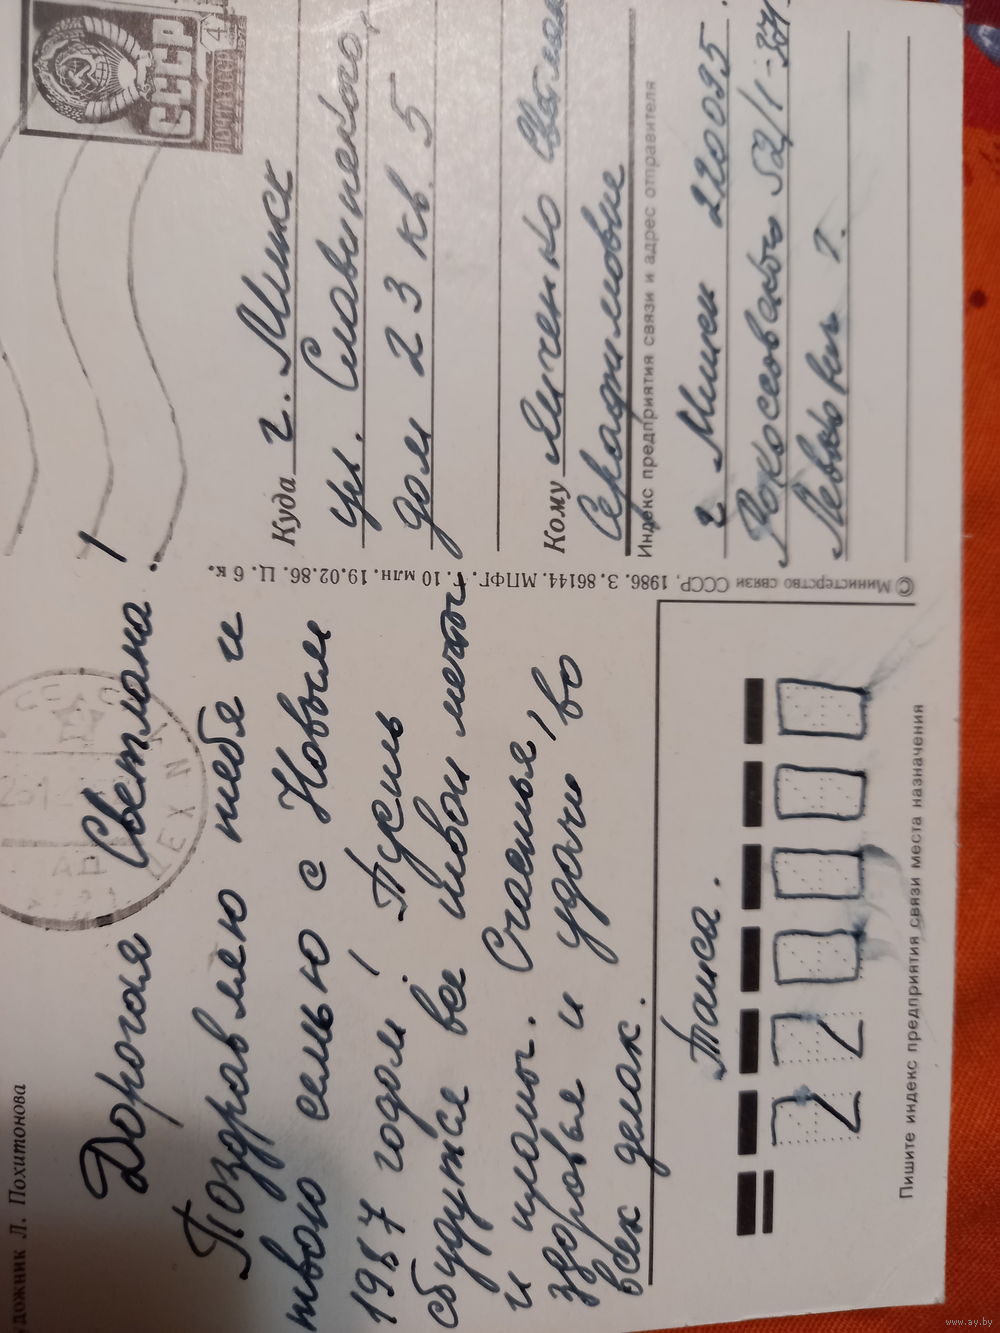 Художник Л. Похитонова
Дорогая Светлана!
Поздравляю тебя и
твою семью с Новым
1987 годом! Пусть
сбудутся все твои мечты
и планы. Счастья,
здоровья и удачи во
всех делах.
Таиса.
220000
Пишите индекс предприятия связи места назначения
© Министерство связи СССР. 1986. З. 86144. МПФГ. Т. 10 млн. 19.02.86. Ц. 6 к.
СССР
ПОЧТА СССР
4
Куда г. Минск
ул. Славинского,
дом 23 кв. 5
Кому Янченко
Серафимовне
Индекс предприятия связи и адрес отправителя
г Минск 220095
Рокоссовского 52/1-334
Левкович Т.
www.ay.by